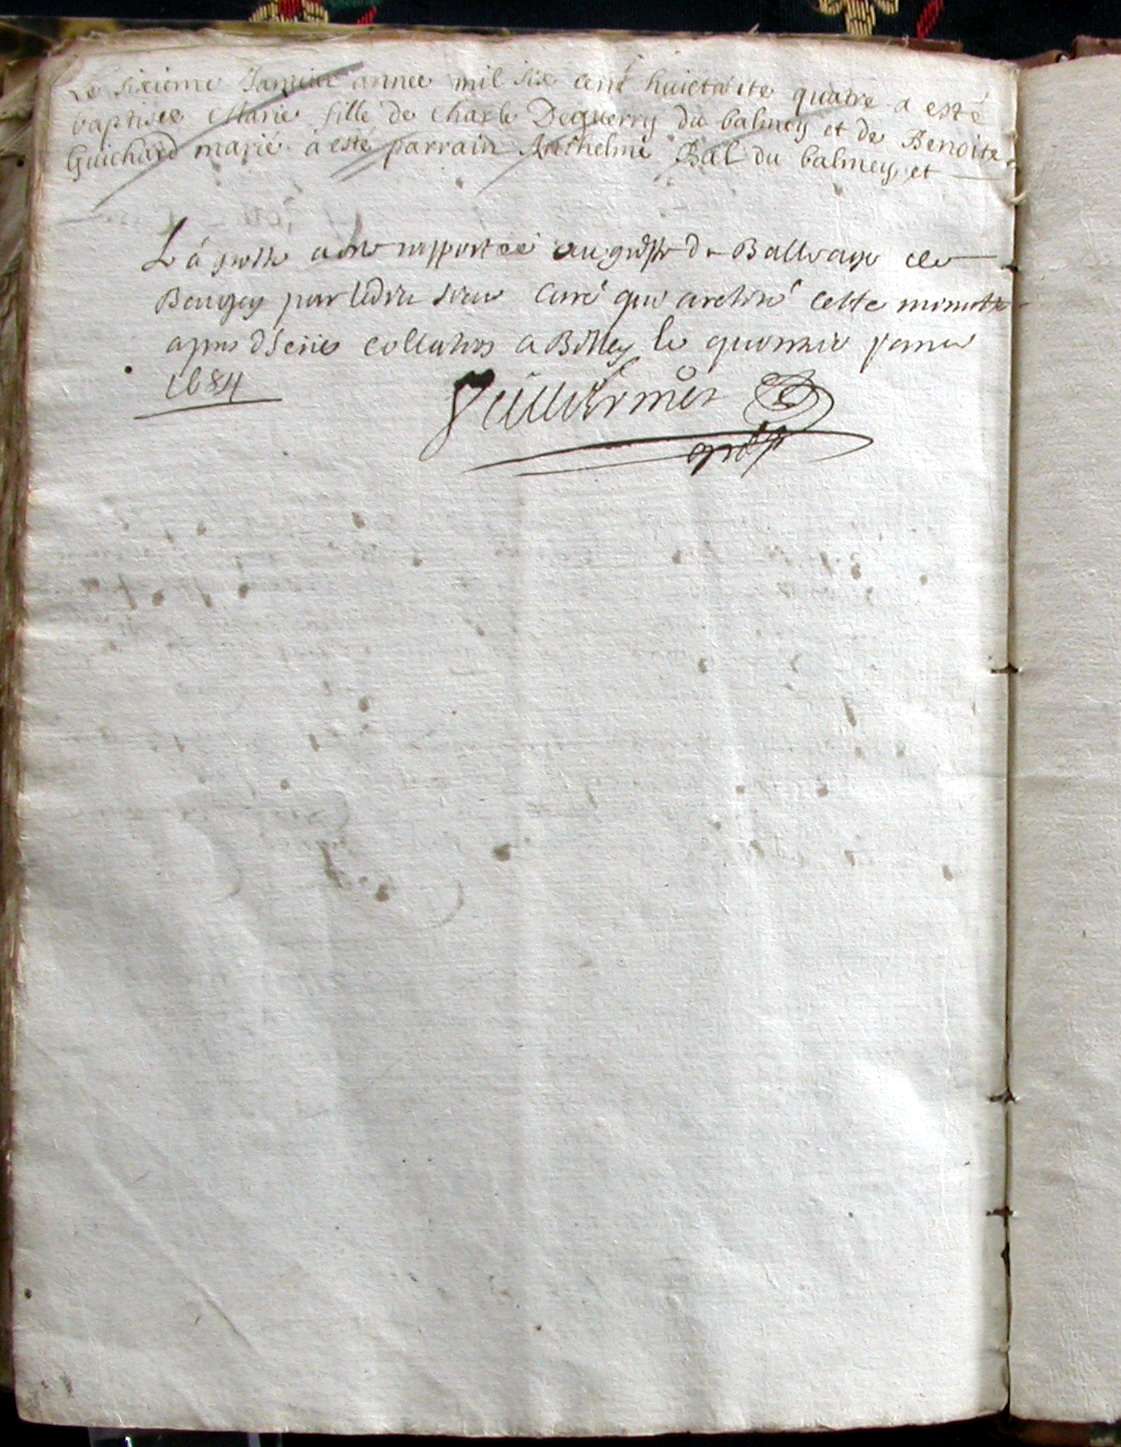 Le sixieme Janvier annee mil six cent huictante quatre a esté
baptisee Marie fille de Charle Deguerry du balmey et de Benoite
Guichard mariés a esté parrain Anthelme Bal du balmey et
La grosse a été rapportée au greffe du Balliage de
Beugey par ledit sieur curé qui a retiré cette minutte
apres collation a Belley le janvier
1684